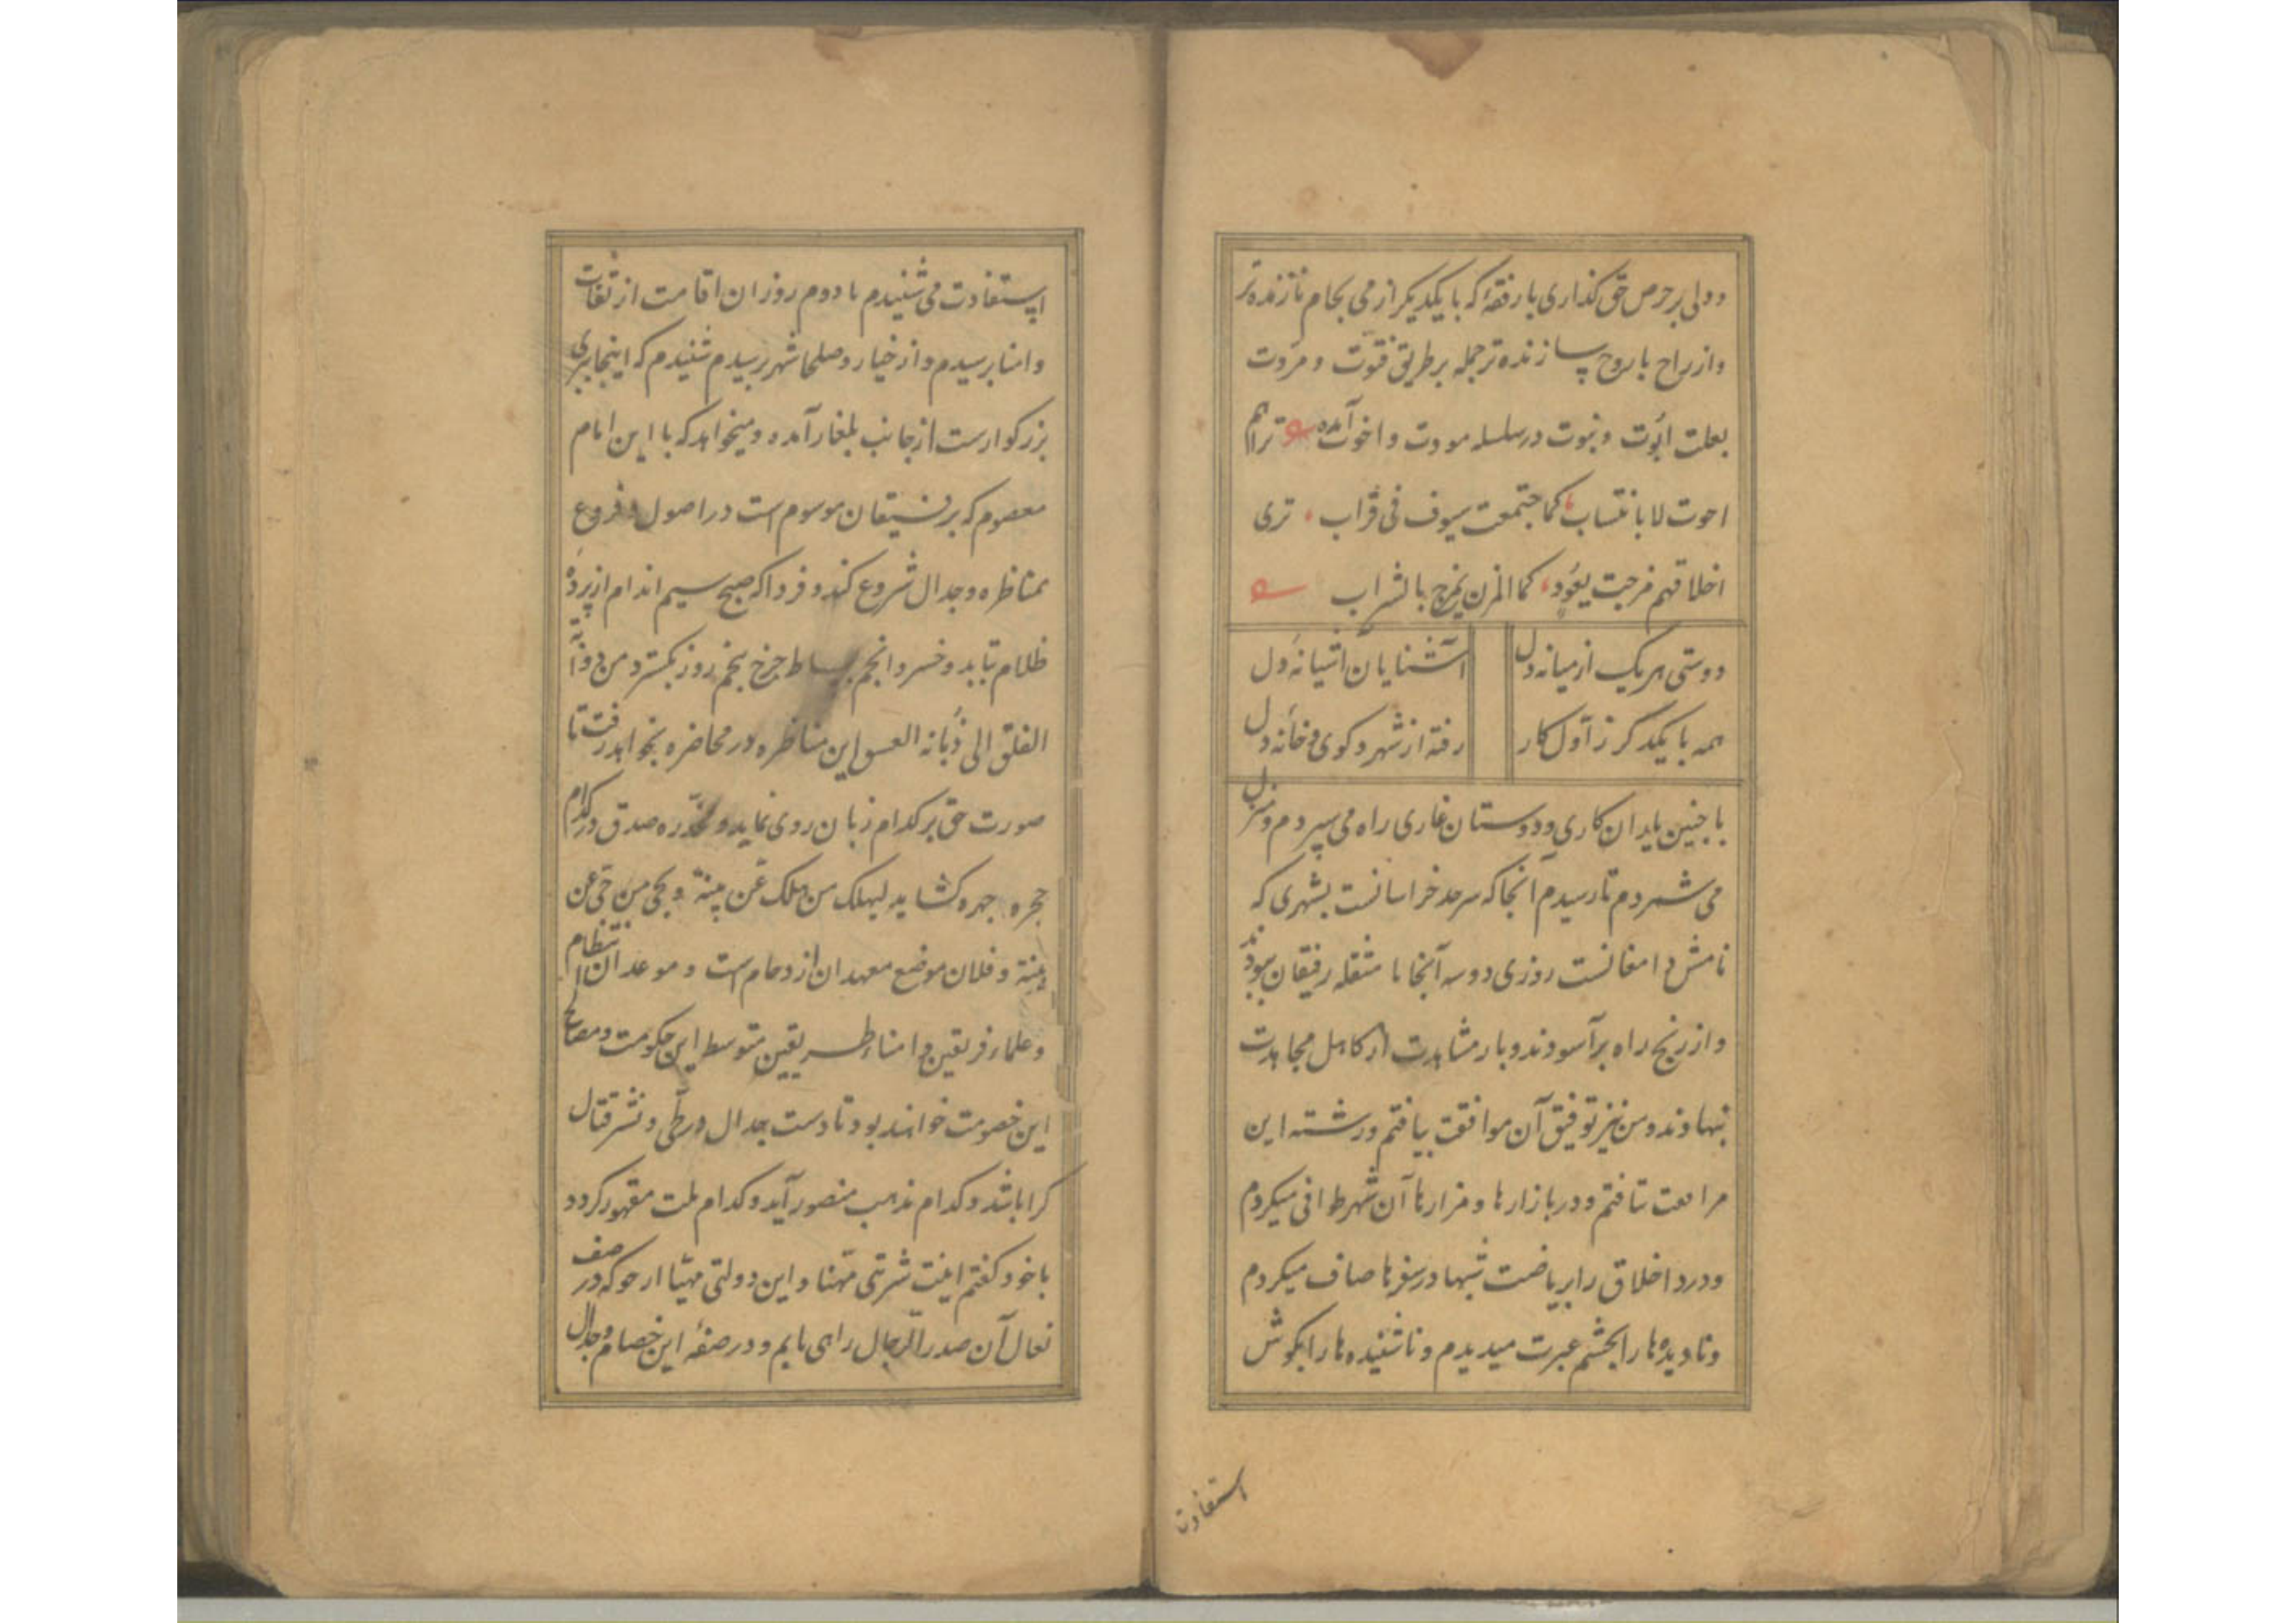 ودلی بر حرص حق گذاری با رفقهٔ که با یکدیگر از می بجام نازنده‌تر
و از راح با روح سازنده‌تر جمله بر طریق فتوّت و مروّت
بعلت ابوّت و بنوت در سلسله مودت و اخوت آمده تراهم
اخوت لا بانتساب کما اجتمعت سیوف فی قراب ترى
اخلاقهم مزجت بعود کما المزن یمزج بالشراب
دوستی هر یک از میانه دل آشنایان آشیانهٔ دل
همه با یکدگر ز اول کار رفته از شهر و کوی و خانه دل
با چنین یاران کاری و دوستان غاری راه می سپردم و منزل
می شمردم تا رسیدم آنجا که سرحد خراسانست بشهری که
نامش دامغانست روزی دو سه آنجا با مشغله رفیقان ببودند
و از رنج راه برآسودند و بار مشاهدت از کاهل مجاهدت
بنهادند و من نیز توفیق آن موافقت بیافتم و رشته این
مرافقت بتافتم و در بازارها و مزارها آن شهر طوافی میکردم
و درد اخلاق را بریاضت شبها در سفرها صاف میکردم
و نادیدها را بچشم عبرت میدیدم و ناشنیده‌ها را بگوش
استفادت
استفادت می شنیدم تا دوم روز ان اقامت از ثقات
و امنا برسیدم و از خیار و صلحا شهر بپرسیدم شنیدم که اینجا پیری
بزرگوارست از جانب بلغار آمده و میخواهد که با این امام
معصوم که بر فسیقان موسوم است در اصول و فروع
بمناظره و جدال شروع کند و فردا که صبح سیم اندام از پرده
ظلام بتابد و خسرو انجم بساط چرخ پنجم روز بگسترد من ذوآبة
الفلق الی ذبانه الغسق این مناظره و در محاضره بخواهد رفت تا
صورت حق بر کدام زبان روی نماید و مخدّره صدق در کدام
حجره چهره گشاید لیهلک من هلک عن بینة و یحیی من حیّ عن
بینة و فلان موضع معهد ان ازدحام است و موعد ان انتظام
و علماء فریقین و امناء طریقین متوسط این حکومت و مصالح
این خصومت خواهند بود تا دست جدال و نشر قتال
کرا باشد و کدام مذهب منصور آید و کدام ملت مقهور گردد
با خود گفتم اینت شربتی مهنا و این دولتی مهیّا ار چو که در صف
نعال آن صدر الرجال راهی یابم و در صفهٔ این خصام و جدال